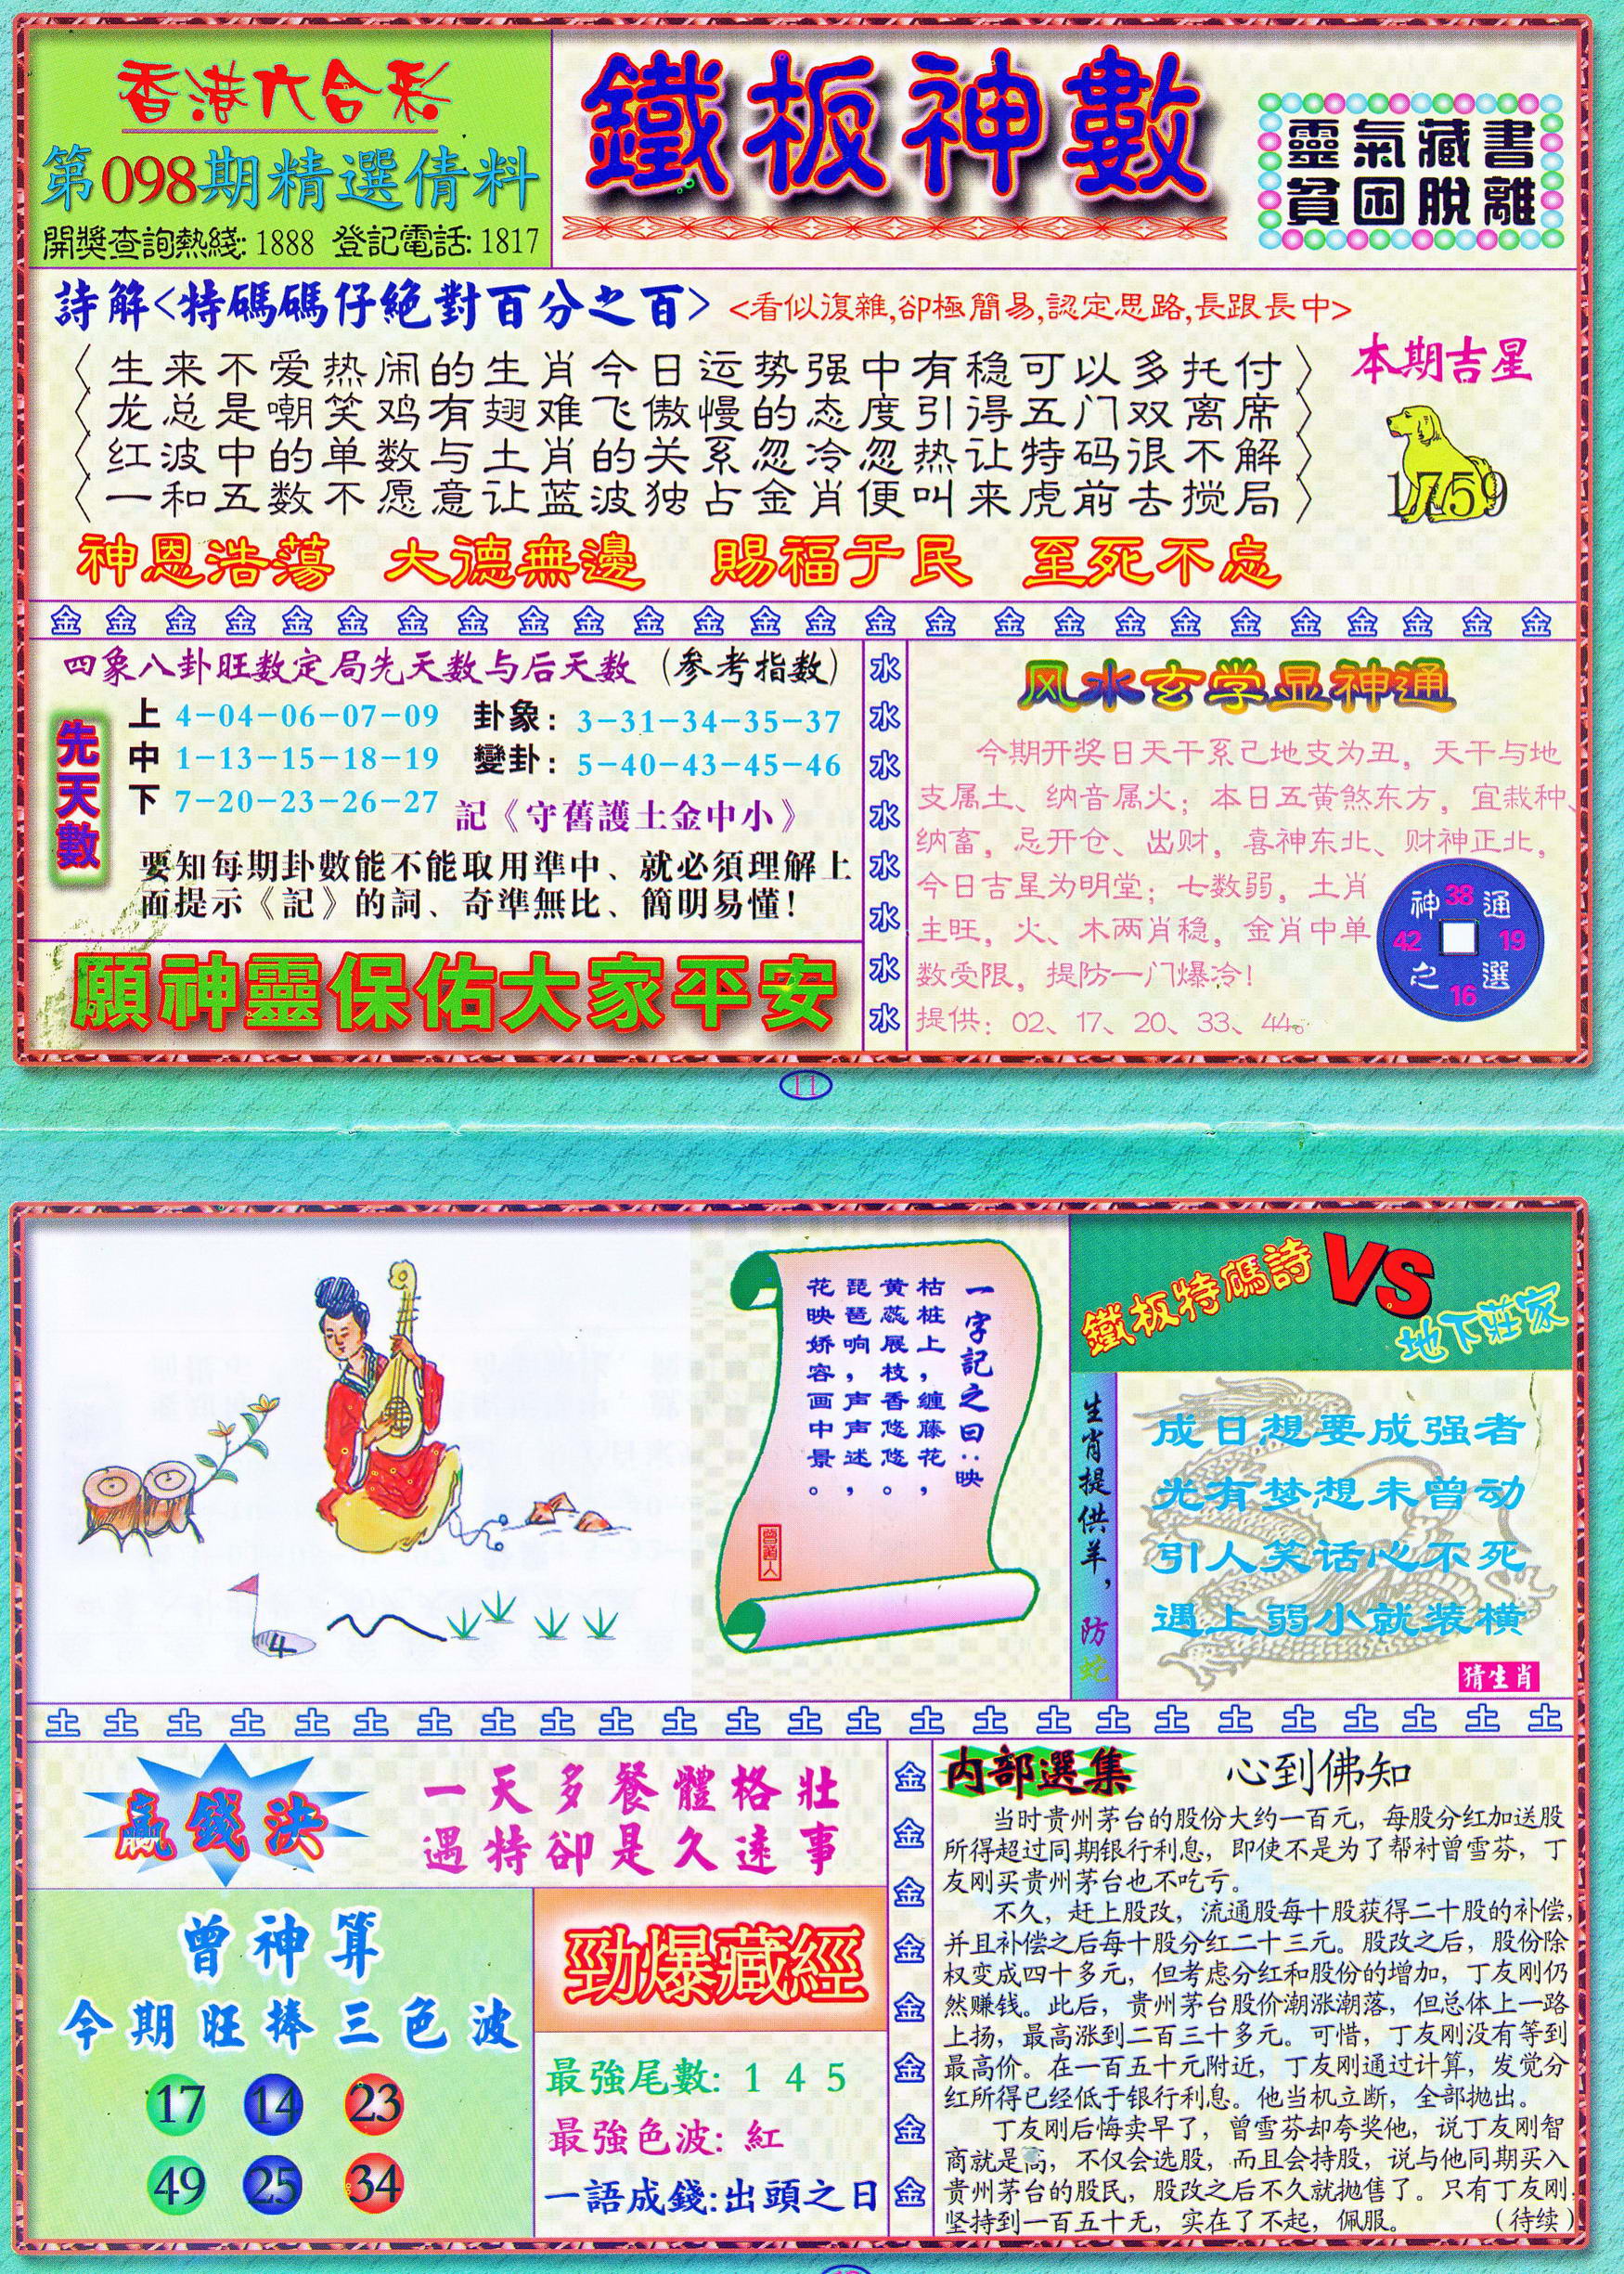 香港六合彩
第098期精選倩料
開獎查詢熱綫: 1888 登記電話: 1817
鐵板神數
靈氣藏書
貧困脫離
詩解<特碼碼仔絕對百分之百> <看似復雜,卻極簡易,認定思路,長跟長中>
生来不爱热闹的生肖今日运势强中有稳可以多托付
龙总是嘲笑鸡有翅难飞傲慢的态度引得五门双离席
红波中的单数与土肖的关系忽冷忽热让特码很不解
一和五数不愿意让蓝波独占金肖便叫来虎前去搅局
本期吉星
1759
神恩浩蕩 大德無邊 賜福于民 至死不忘
金 金 金 金 金 金 金 金 金 金 金 金 金 金 金 金 金 金 金 金 金 金 金 金 金 金
四象八卦旺数定局先天数与后天数（参考指数）
先天數
上 4-04-06-07-09 卦象: 3-31-34-35-37
中 1-13-15-18-19 變卦: 5-40-43-45-46
下 7-20-23-26-27 記《守舊護土金中小》
要知每期卦數能不能取用準中、就必須理解上
面提示《記》的詞、奇準無比、簡明易懂!
願神靈保佑大家平安
水
水
水
水
水
水
水
水
风水玄学显神通
今期开奖日天干系己地支为丑，天干与地
支属土、纳音属火；本日五黄煞东方，宜栽种、
纳畜，忌开仓、出财，喜神东北、财神正北，
今日吉星为明堂；七数弱，土肖
主旺，火、木两肖稳，金肖中单
数受限，提防一门爆冷!
提供: 02、17、20、33、44。
神 38 通
42 19
之 16 選
11
一字記之曰:映
枯桩上，缠藤花，
黄蕊展枝香悠悠。
琵琶响，声声迷，
花映娇容画中景。
曾道人
4
鐵板特碼詩
VS
地下莊家
生肖提供羊，防蛇
成日想要成强者
光有梦想未曾动
引人笑话心不死
遇上弱小就装横
猜生肖
土 土 土 土 土 土 土 土 土 土 土 土 土 土 土 土 土 土 土 土 土 土 土 土 土
贏錢決
一天多餐體格壯
遇特卻是久遠事
曾神算
今期旺捧三色波
17 14 23
49 25 34
勁爆藏經
最強尾數: 1 4 5
最強色波: 紅
一語成錢:出頭之日
金
金
金
金
金
金
金
金
内部選集 心到佛知
当时贵州茅台的股份大约一百元，每股分红加送股
所得超过同期银行利息，即使不是为了帮衬曾雪芬，丁
友刚买贵州茅台也不吃亏。
不久，赶上股改，流通股每十股获得二十股的补偿，
并且补偿之后每十股分红二十三元。股改之后，股份除
权变成四十多元，但考虑分红和股份的增加，丁友刚仍
然赚钱。此后，贵州茅台股价潮涨潮落，但总体上一路
上扬，最高涨到二百三十多元。可惜，丁友刚没有等到
最高价。在一百五十元附近，丁友刚通过计算，发觉分
红所得已经低于银行利息。他当机立断，全部抛出。
丁友刚后悔卖早了，曾雪芬却夸奖他，说丁友刚智
商就是高，不仅会选股，而且会持股，说与他同期买入
贵州茅台的股民，股改之后不久就抛售了。只有丁友刚
坚持到一百五十无，实在了不起，佩服。 （待续）